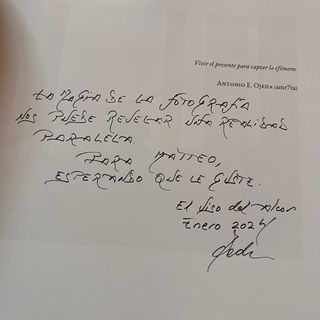 Vivir el presente para captar lo efímero.
Antonio E. Ojeda (ame7ta)
LA MAGIA DE LA FOTOGRAFÍA
NOS PUEDE REVELAR UNA REALIDAD
PARALELA.
PARA MATTEO,
ESPERANDO QUE LE GUSTE.
El Viso del Alcor
Enero 2024
Ojeda